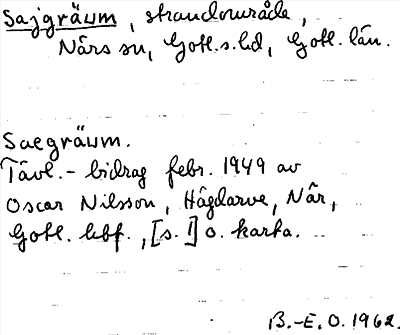 Sajgräum, strandområde,
Närs sn, Gotl. s. hd, Gotl. län.
Saegräum.
Tävl.-bidrag febr. 1949 av
Oscar Nilsson, Hägdarve, När,
Gotl. hbf., [s. 1] o. karta.
B.-E. O. 1962.